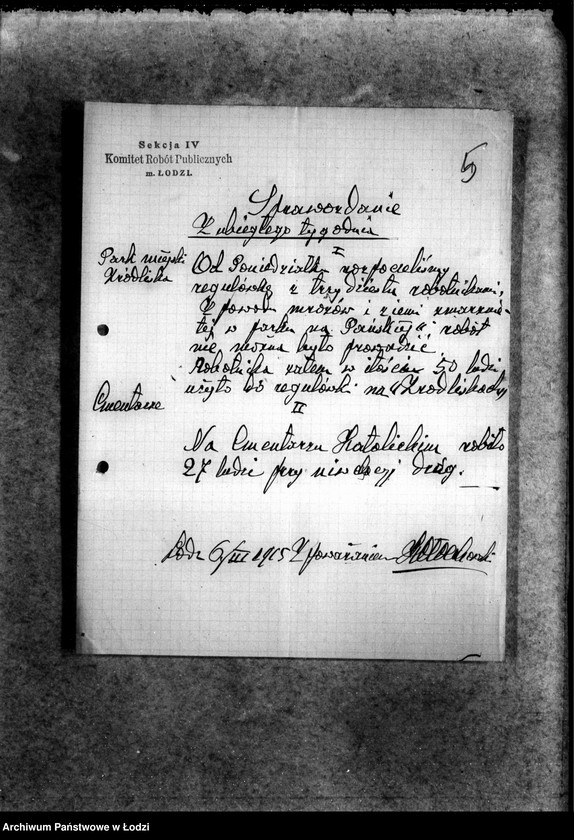 Sekcja IV
Komitet Robót Publicznych
m. ŁODZI.
5
Sprawozdanie
Z ubiegłego tygodnia
I
Park miejski
Źródliska
Od Poniedziałku rozpoczeliśmy
regulówkę z trzydziestu robotnikami,
Z powodu mrozów i ziemi zmarznię-
tej w parku na Pańskiej" robót
nie można było prowadzić
Robotnika zatem w ilości 50 ludzi
użyto do regulówki na „Źrodliskach"
Cmentarze
II
Na Cmentarzu Katolickim robiło
27 ludzi przy niwelacji dróg.
Łódz 6/III 1915 Z poważaniem
Archiwum Państwowe w Łodzi